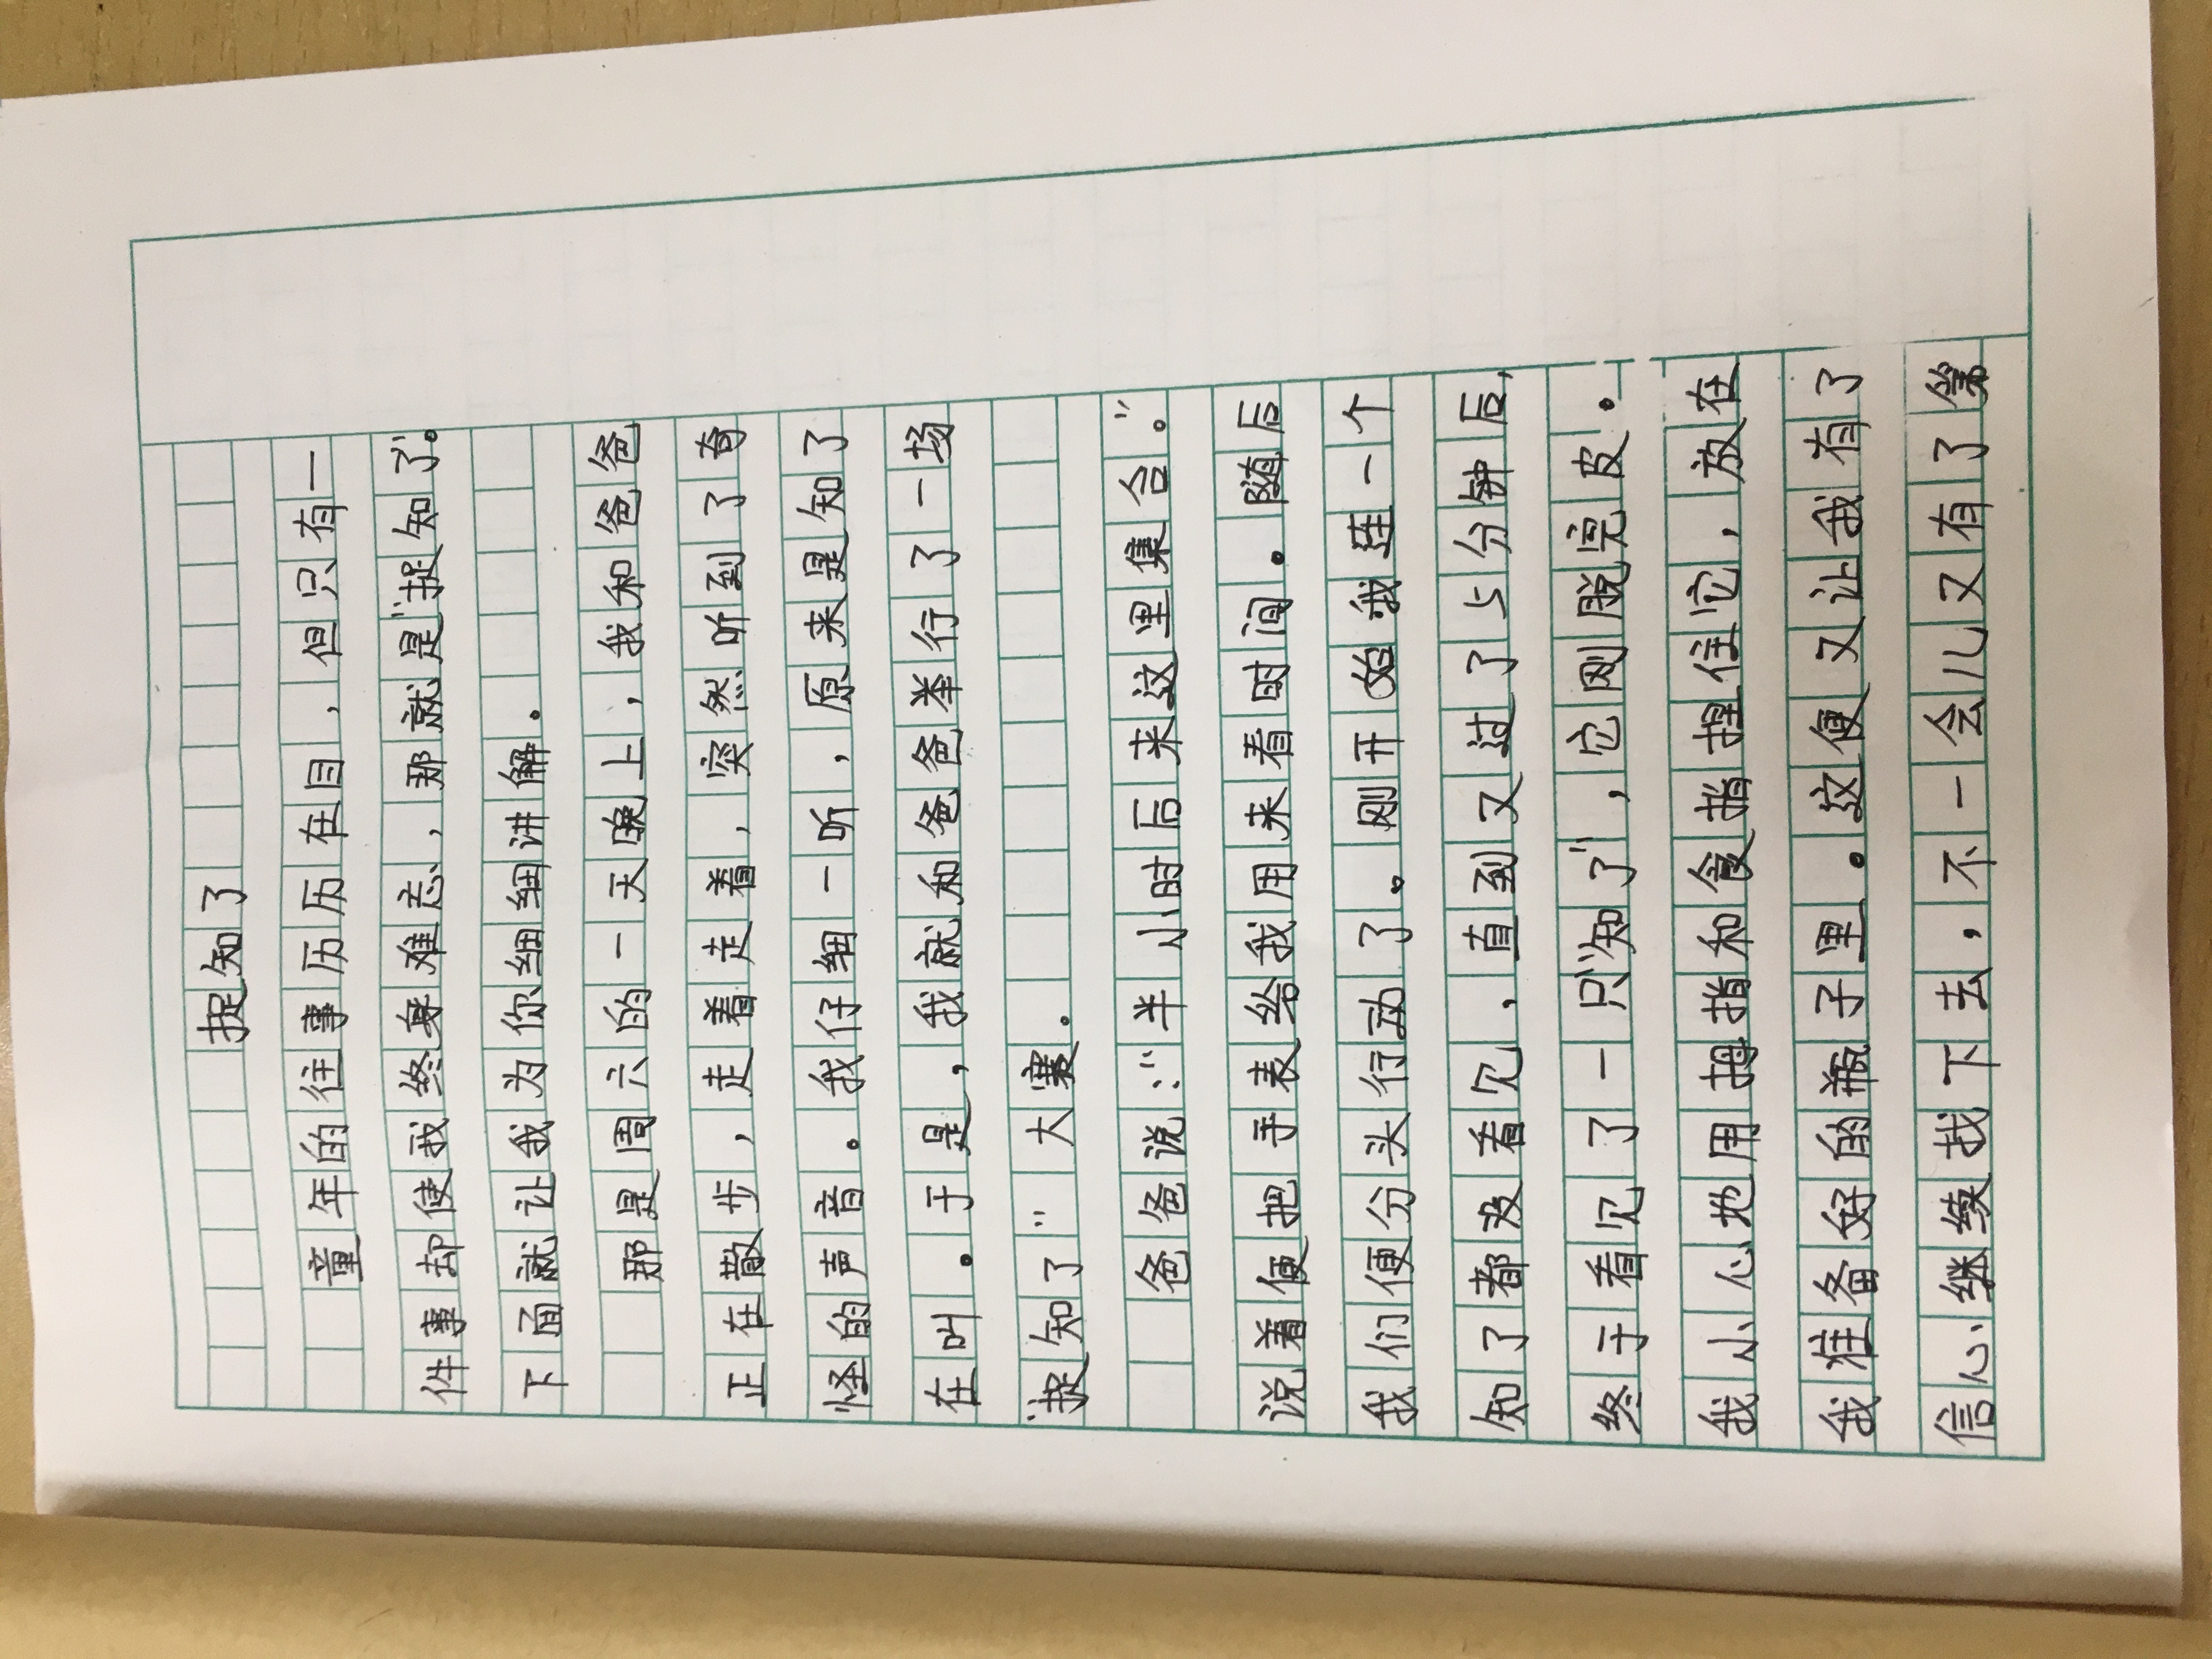 捉知了
童年的往事历历在目，但只有一
件事却使我终身难忘，那就是“捉知了”。
下面就让我为你细细讲解。
那是周六的一天晚上，我和爸爸
正在散步，走着走着，突然听到了奇
怪的声音。我仔细一听，原来是知了
在叫。于是，我就和爸爸举行了一场
“捉知了”大赛。
爸爸说：“半小时后来这里集合。”
说着便把手表给我用来看时间。随后
我们便分头行动了。刚开始我连一个
知了都没看见，直到又过了5分钟后，
终于看见了一只“知了”，它刚脱完皮。
我小心地用拇指和食指捏住它，放在
我准备好的瓶子里。这便又让我有了
信心继续找下去，不一会儿又有了第